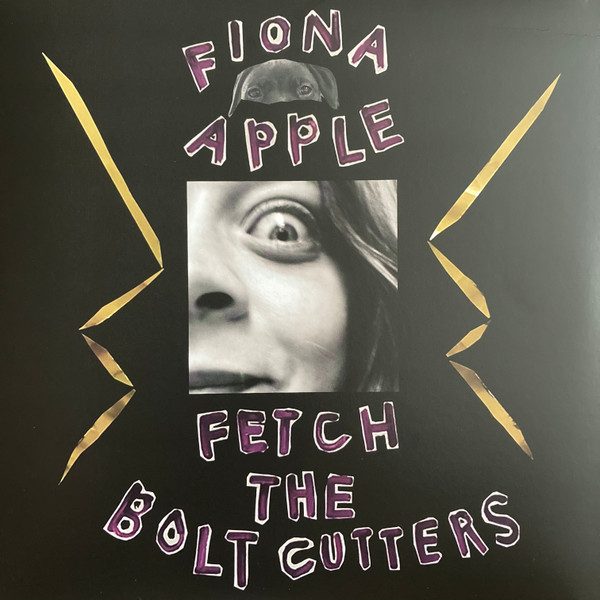 FIONA
APPLE
FETCH
THE
BOLT CUTTERS